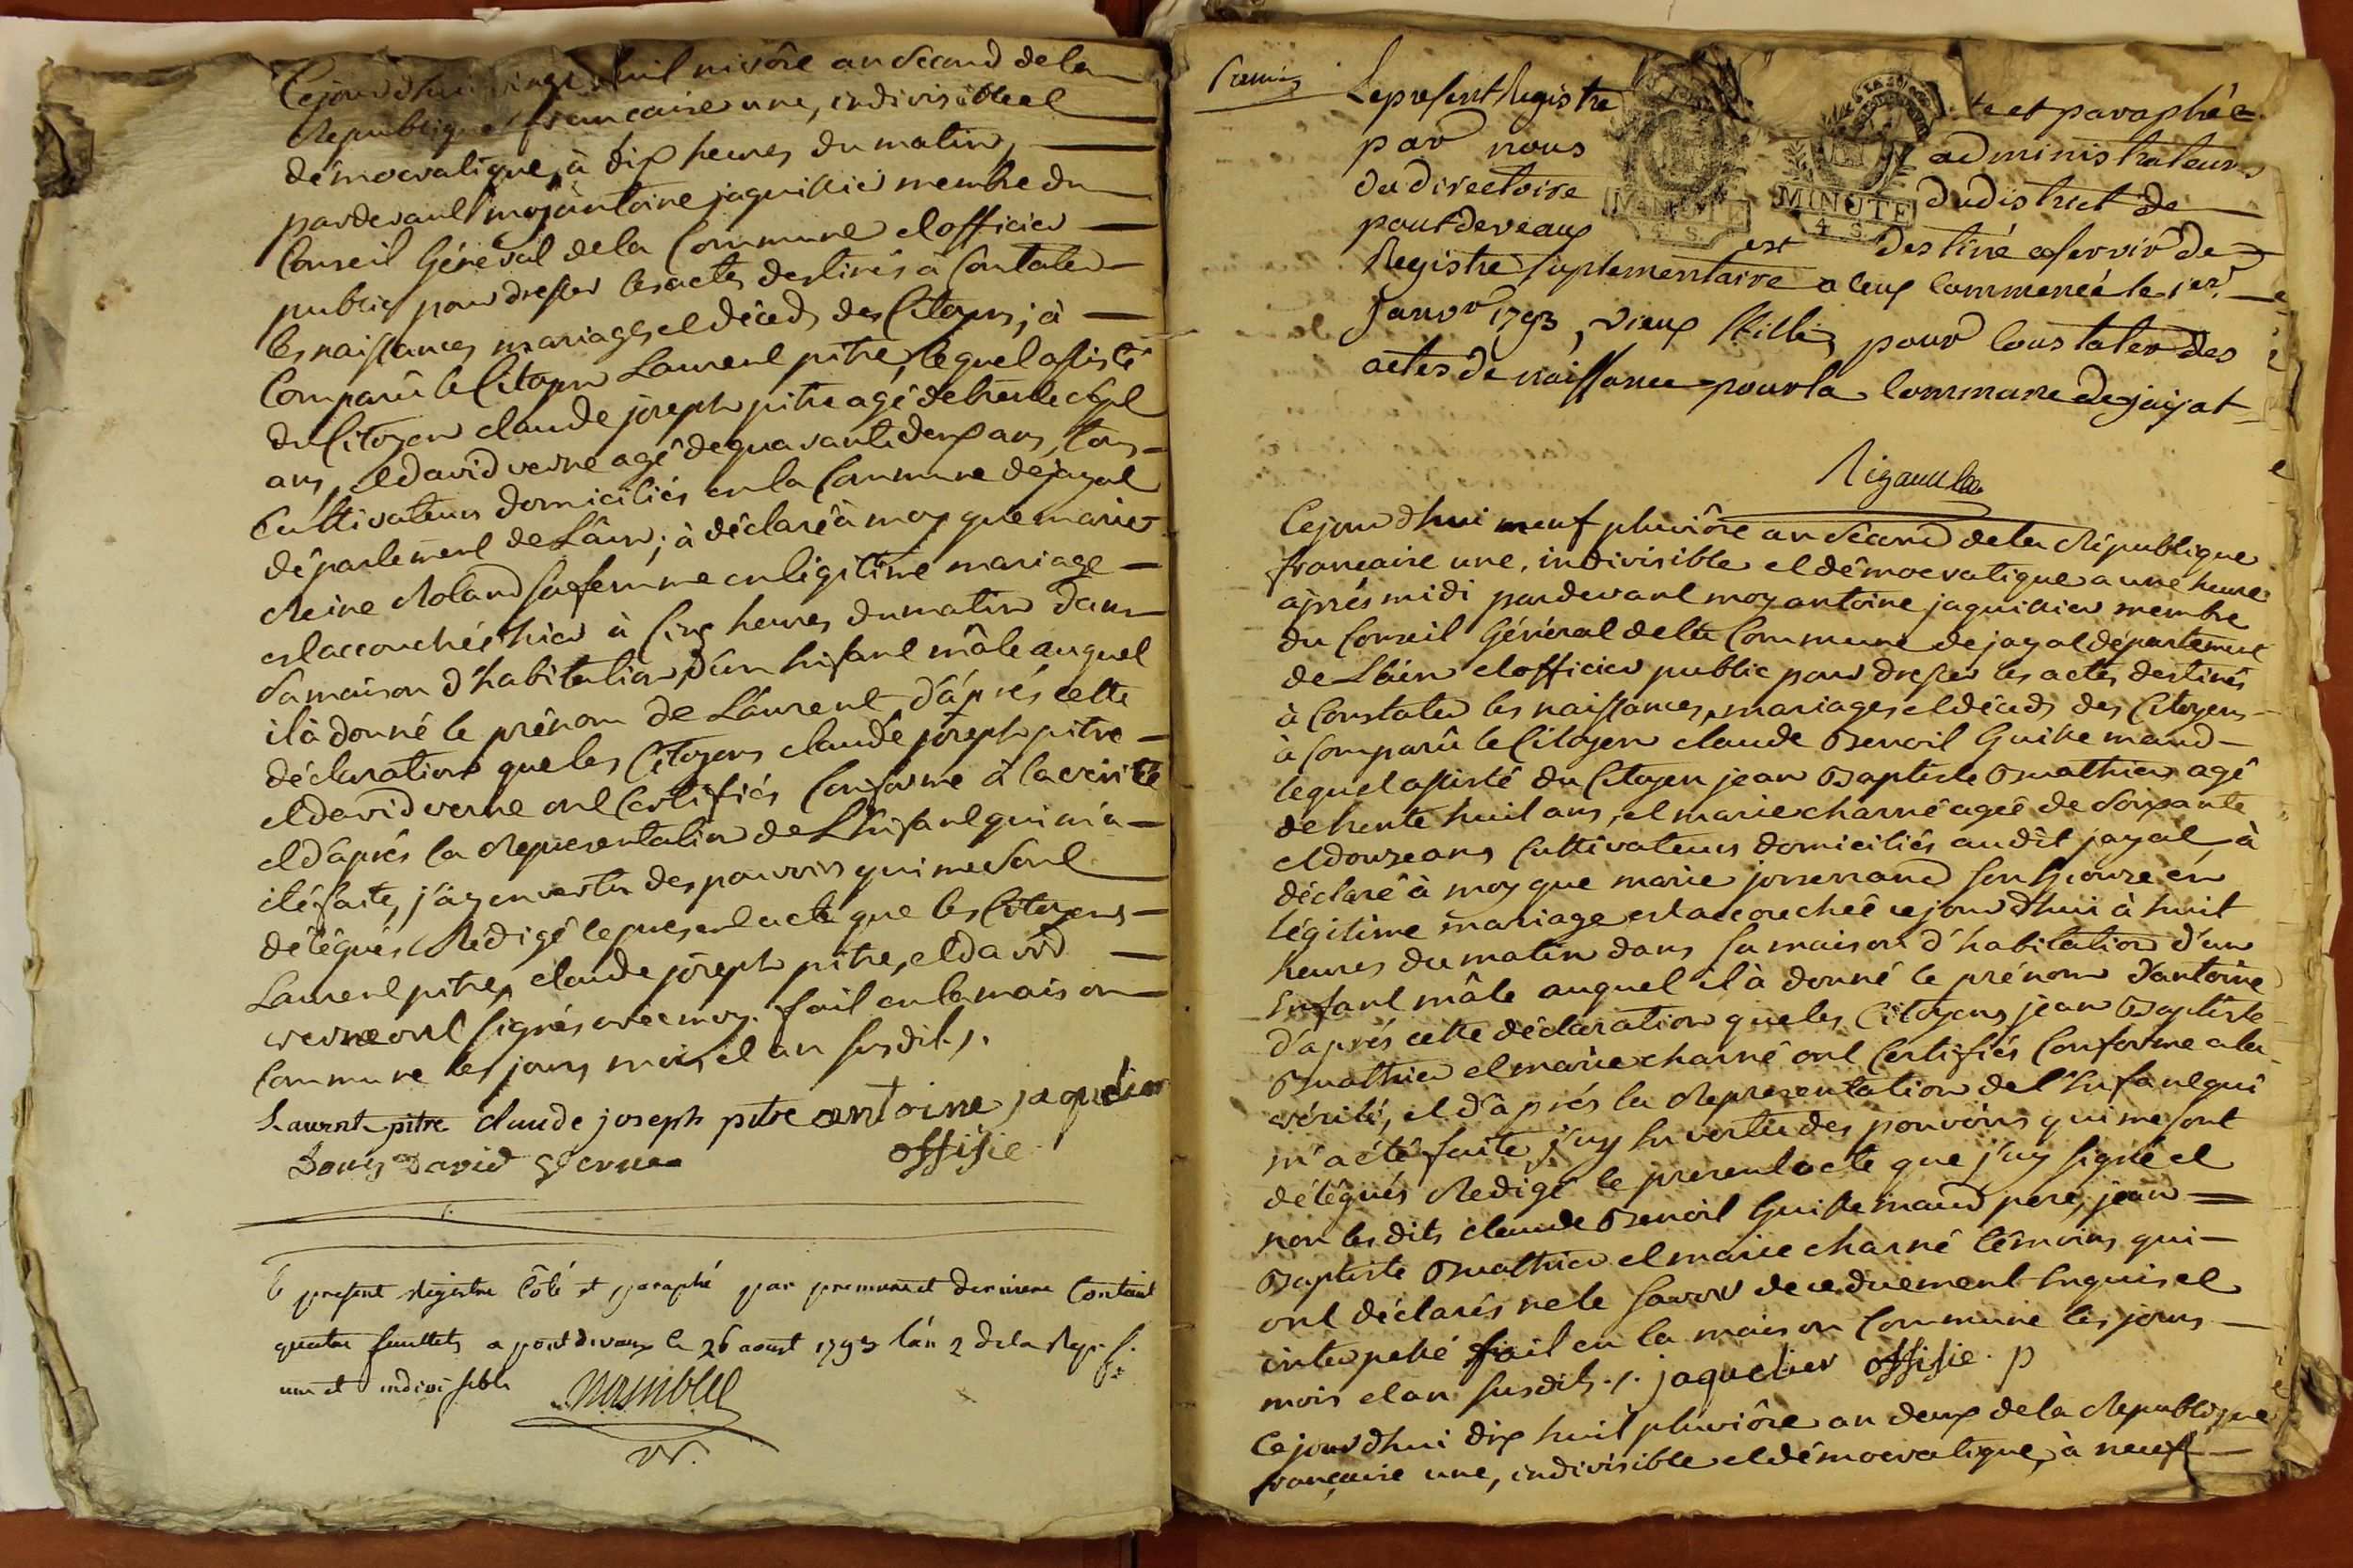 Cejourd'hui vingt huit nivôse an second de la
Republique francaise une, indivisible et
démocratique, à dix heures du matin,
pardevant moy antoine jaquillier membre du
Conseil Général de la Commune et officier
public pour dresser les actes destinés à Constater
les naissances mariages et décéds des Citoyens; à
Comparû le Citoyen Laurent pitre, lequel assisté
du Citoyen claude joseph pitre agé de trente sept
ans, et david verne agé de quarante deux ans, tous
Cultivateurs domiciliés en la Commune de jayat
département de L'ain; à déclaré à moy que marie
Reine Roland sa femme en légitime mariage
est accouchée hier à Cinq heures du matin dans
sa maison d'habitation, d'un Enfant mâle auquel
il à donné le prénom de Laurent, d'après cette
déclaration que les Citoyens claude joseph pitre
et david verne ont Certifiés Conforme à la vérité
et d'après la Representation de L'Enfant qui m'a
été faite, j'ay en vertu des pouvoirs qui me sont
délégués Rédigé le present acte que les Citoyens
Laurent pitre, claude joseph pitre, et david
verne ont signés avec moy. fait en la maison
Commune les jours mois et an susdit ./.
Laurent pitre claude joseph pitre antoine jaquelier
David verne offisie
le present Registre Côté et paraphé par premiere et derniere Contient
quatre feuillets a pontdevaux le 26 aoust 1793 l'an 2 de la Rep. f.
une et indivisible
Premier
Le present Registre te et paraphée
par nous administrateurs
du directoire du district de
pontdevaux est destiné a servir de
MINUTE
4 S.
MINUTE
4 S.
Registre suplementaire a celuy Commencé le 1er
Janvr 1793, vieux stille, pour Constater des
actes de naissance pour la Commune de jayat
Cejourd'hui neuf pluviôse an second de la République
francaise une, indivisible et démocratique a une heure
après midi pardevant moy antoine jaquillier membre
du Conseil Général de la Commune de jayat département
de L'ain et officier public pour dresser les actes destinés
à Constater les naissances, mariages et décéds des Citoyens
à Comparû le Citoyen claude Benoit Guillemaud
lequel assisté du Citoyen jean Baptiste Mathieu agé
de trente huit ans, et marie charné agée de soixante
et douze ans Cultivateurs domiciliés audit jayat, à
déclaré à moy que marie josserand son Epouse en
légitime mariage est accouchée cejourd'hui à huit
heures du matin dans sa maison d'habitation d'un
Enfant mâle auquel il à donné le prénom d'antoine
d'après cette déclaration que les Citoyens jean Baptiste
Mathieu et marie charné ont Certifiés Conforme a la
vérité, et d'après la Representation de l'Enfant qui
m'a été faite j'ay En vertu des pouvoirs qui me sont
délégués Redigé le present acte que j'ay signé et
non lesdits claude Benoit Guillemaud pere, jean
Baptiste Mathieu et marie charné témoins qui
ont déclarés ne le savoir de ce duement Enquis et
interpellé fait en la maison Commune les jours
mois et an susdits ./. jaquelier offisie. p
Cejourd'hui dix huit pluviôse an deux de la Republique
française une, indivisible et démocratique, à neuf